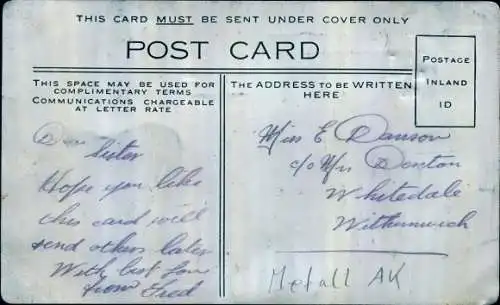 THIS CARD MUST BE SENT UNDER COVER ONLY
POST CARD
POSTAGE
INLAND
1D
THIS SPACE MAY BE USED FOR
COMPLIMENTARY TERMS
COMMUNICATIONS CHARGEABLE
AT LETTER RATE
THE ADDRESS TO BE WRITTEN
HERE
Dear Sister
Hope you like
this card will
send others later
With best love
from Fred
Miss E Dawson
c/o Mrs Denton
Whitedale
Withernwich
Metall AK